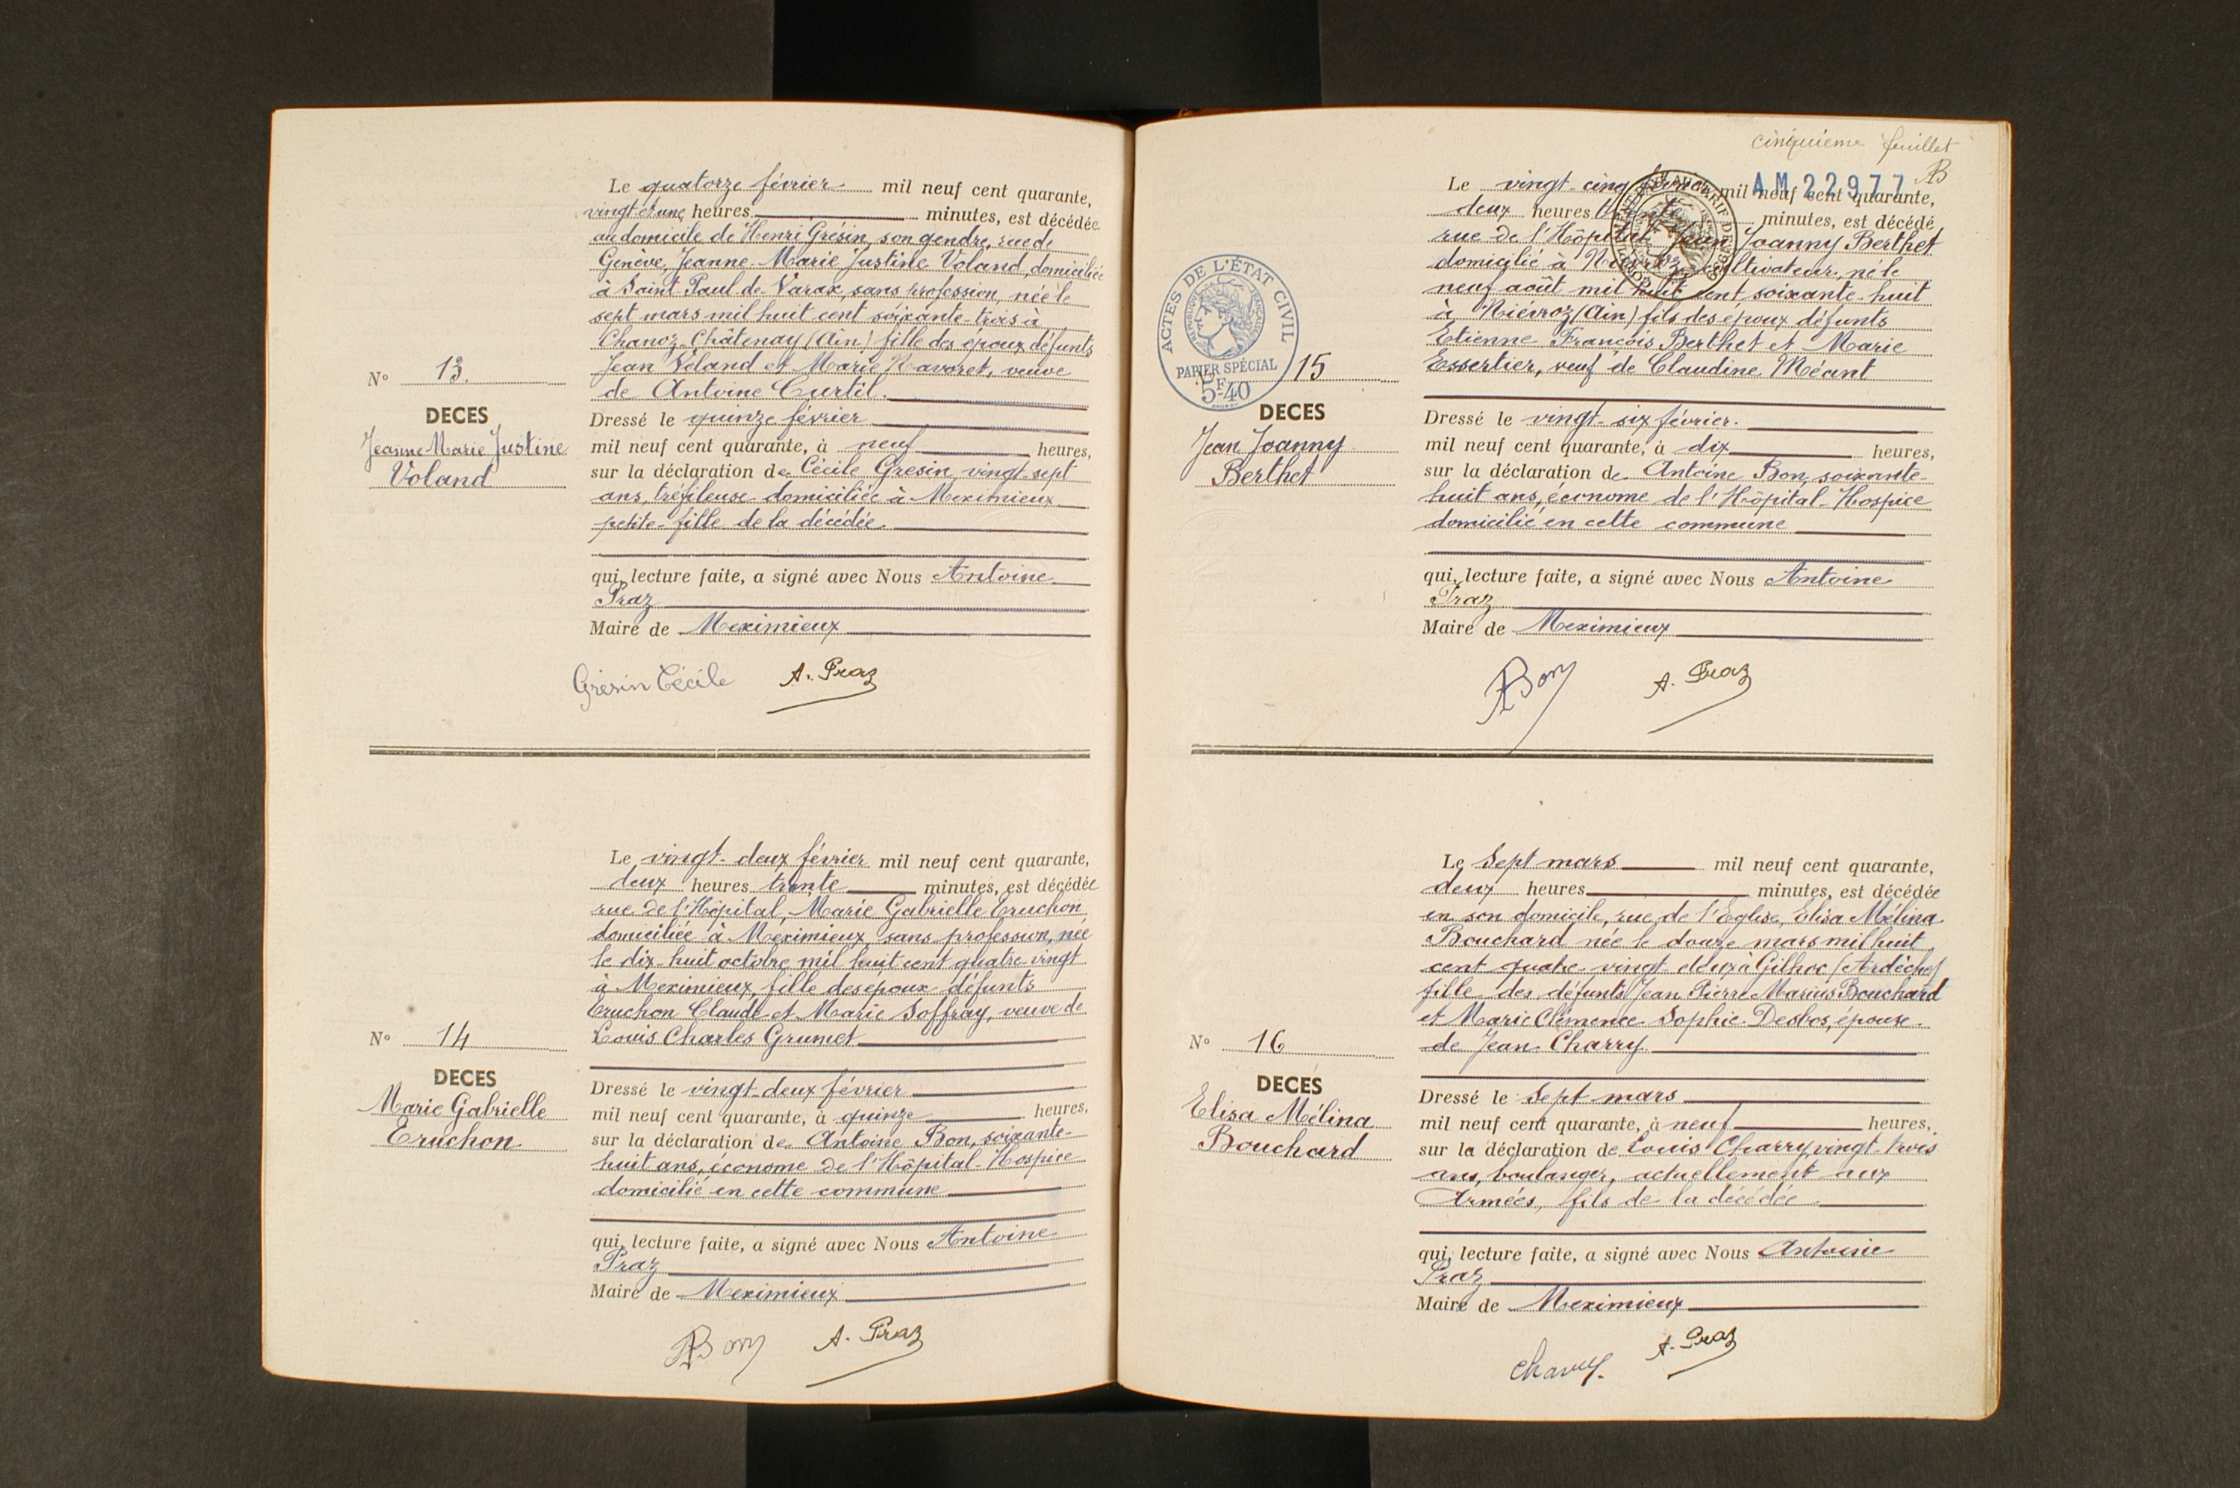 Le quatorze février mil neuf cent quarante,
vingt et une heures minutes, est décédée
au domicile de Henri Grésin, son gendre, rue de
Genève, Jeanne-Marie Justine Voland, domiciliée
à Saint Paul de Varax, sans profession, née le
sept mars mil huit cent soixante-trois à
Chanoz-Châtenay (Ain) fille des époux défunts
Jean Voland et Marie Navoret, veuve
de Antoine Curtil.
N° 13.
DECES
Jeanne Marie Justine
Voland
Dressé le quinze février
mil neuf cent quarante, à neuf heures,
sur la déclaration de Cécile Gresin, vingt-sept
ans, tréfileuse domiciliée à Meximieux
petite-fille de la décédée.
qui, lecture faite, a signé avec Nous Antoine
Praz
Maire de Meximieux
Grésin Cécile A. Praz
Le vingt-deux février mil neuf cent quarante,
deux heures trente minutes, est décédée
rue de l'Hôpital, Marie Gabrielle Eruchon,
domiciliée à Meximieux, sans profession, née
le dix-huit octobre mil huit cent quatre-vingt
à Meximieux, fille des époux défunts
Eruchon Claude et Marie Soffray, veuve de
Louis Charles Grumet
N° 14
DECES
Marie Gabrielle
Eruchon
Dressé le vingt-deux février
mil neuf cent quarante, à quinze heures,
sur la déclaration de Antoine Bon, soixante-
huit ans, économe de l'Hôpital-Hospice
domicilié en cette commune
qui, lecture faite, a signé avec Nous Antoine
Praz
Maire de Meximieux
ABon A. Praz
cinquième feuillet
AB
AM22977
Le vingt-cinq février mil neuf cent quarante,
deux heures trente minutes, est décédé
rue de l'Hôpital Jean Joanny Berthet
domicilié à Niévroz, cultivateur, né le
neuf août mil huit cent soixante-huit
à Niévroz (Ain) fils des époux défunts
Etienne François Berthet et Marie
Essertier, veuf de Claudine Méant
ACTES DE L'ÉTAT CIVIL
RÉPUBLIQUE FRANÇAISE
PAPIER SPÉCIAL
5F.40
15
DECES
Jean Joanny
Berthet
Dressé le vingt-six février.
mil neuf cent quarante, à dix heures,
sur la déclaration de Antoine Bon, soixante-
huit ans, économe de l'Hôpital-Hospice
domicilié en cette commune
qui, lecture faite, a signé avec Nous Antoine
Praz
Maire de Meximieux
ABon A. Praz
Le Sept mars mil neuf cent quarante,
deux heures minutes, est décédée
en son domicile, rue de l'Eglise, Elisa Mélina
Bouchard née le douze mars mil huit
cent quatre-vingt-deux à Gilhoc (Ardèche)
fille des défunts Jean Pierre Marius Bouchard
et Marie Clémence Sophie Desbos, épouse
de Jean Charry.
N° 16
DECES
Elisa Mélina
Bouchard
Dressé le Sept mars
mil neuf cent quarante, à neuf heures,
sur la déclaration de Louis Charry, vingt-trois
ans, boulanger, actuellement aux
Armées, fils de la décédée
qui, lecture faite, a signé avec Nous Antoine
Praz
Maire de Meximieux
Charry. A. Praz